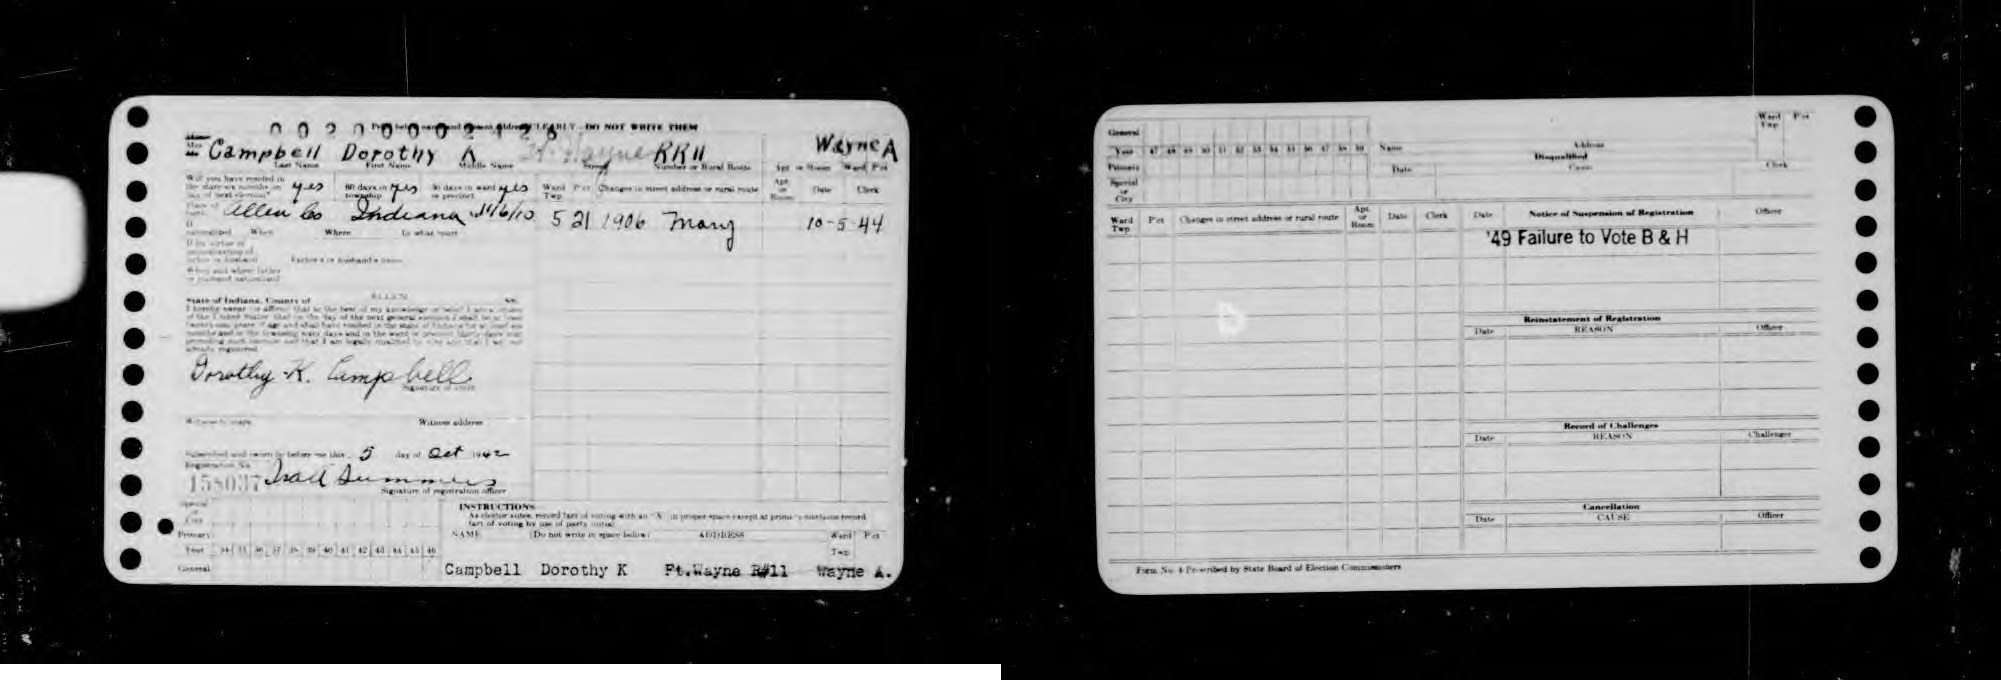 DO NOT WRITE THEM
Campbell Dorothy K Ft Wayne RR 11 Wayne A
Last Name First Name Middle Name Street Number or Rural Route Apt. or Room Ward Pct
Will you have resided in
the state six months on yes 60 days in yes 30 days in ward yes Ward Pct Changes in street address or rural route Apt. or Room Date Clerk
day of next election? township or precinct Twp
Allen Co Indiana 11/6/10 5 21 1906 Mary 10-5-44
If
naturalized When Where In what court
If by virtue of
naturalization of
father or husband Father's or husband's name
When and where father
or husband naturalized
State of Indiana, County of ALLEN ss.
I hereby swear (or affirm) that to the best of my knowledge or belief I am a citizen
of the United States that on the day of the next general election I shall be at least
already registered
Dorothy K. Campbell
Signature of voter
Witness to mark Witness address
Subscribed and sworn to before me this 5 day of Oct 1942
Registration No.
158037 Summers
Signature of registration officer
Special
or
City
INSTRUCTIONS
As elector votes, record fact of voting with an "X" in proper space except at primary elections record
fact of voting by use of party initial
Primary NAME (Do not write in space below) ADDRESS Ward Pct
Year 34 35 36 37 38 39 40 41 42 43 44 45 46 Twp
General Campbell Dorothy K Ft.Wayne R#11 Wayne A.
General Ward Pct
Twp
Year 47 48 49 50 51 52 53 54 55 56 57 58 59 Name Address
Disqualified
Primary Date Cause Clerk
Special
or
City
Ward Twp Pct Changes in street address or rural route Apt. or Room Date Clerk Date Notice of Suspension of Registration Officer
'49 Failure to Vote B & H
Reinstatement of Registration
Date REASON Officer
Record of Challenges
Date REASON Challenger
Cancellation
Date CAUSE Officer
Form No. 4 Prescribed by State Board of Election Commissioners